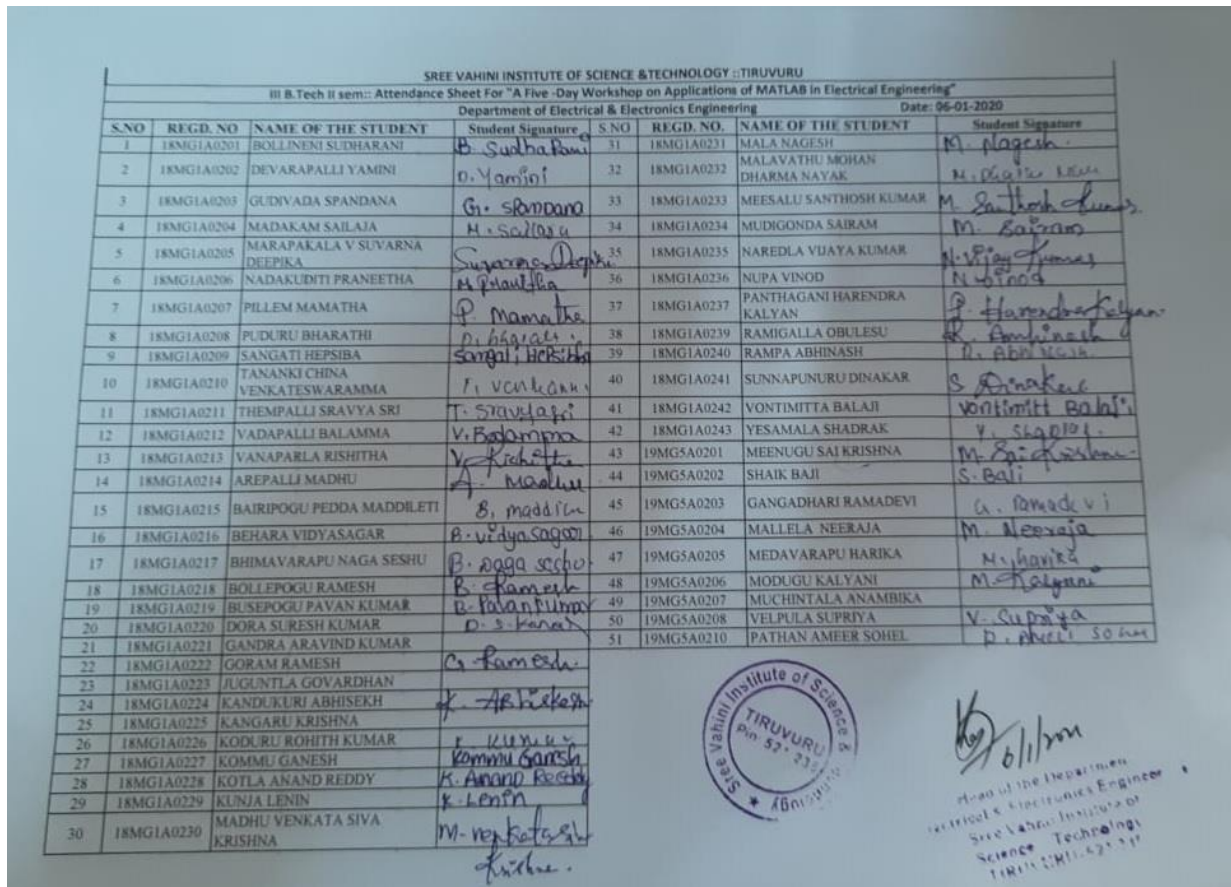 SREE VAHINI INSTITUTE OF SCIENCE &TECHNOLOGY ::TIRUVURU
III B.Tech II sem:: Attendance Sheet For "A Five -Day Workshop on Applications of MATLAB in Electrical Engineering"
Department of Electrical & Electronics Engineering Date: 06-01-2020
S.NO REGD. NO NAME OF THE STUDENT Student Signature S NO REGD. NO. NAME OF THE STUDENT Student Signature
1 18MG1A0201 BOLLINENI SUDHARANI B. Sudha Rani 31 18MG1A0231 MALA NAGESH M. Nagesh.
2 18MG1A0202 DEVARAPALLI YAMINI D. Yamini 32 18MG1A0232 MALAVATHU MOHAN DHARMA NAYAK
3 18MG1A0203 GUDIVADA SPANDANA G. Spandana 33 18MG1A0233 MEESALU SANTHOSH KUMAR M. Santhosh Kumar
4 18MG1A0204 MADAKAM SAILAJA M. Sailaja 34 18MG1A0234 MUDIGONDA SAIRAM M. Sairam
5 18MG1A0205 MARAPAKALA V SUVARNA DEEPIKA Suvarna Deepika 35 18MG1A0235 NAREDLA VIJAYA KUMAR N. Vijay Kumar
6 18MG1A0206 NADAKUDITI PRANEETHA 36 18MG1A0236 NUPA VINOD N Vinod
7 18MG1A0207 PILLEM MAMATHA P. Mamatha 37 18MG1A0237 PANTHAGANI HARENDRA KALYAN P. Harendra Kalyan
8 18MG1A0208 PUDURU BHARATHI 38 18MG1A0239 RAMIGALLA OBULESU
9 18MG1A0209 SANGATI HEPSIBA Sangati Hepsibha 39 18MG1A0240 RAMPA ABHINASH R. Abhinash
10 18MG1A0210 TANANKI CHINA VENKATESWARAMMA 40 18MG1A0241 SUNNAPUNURU DINAKAR S Dinakar
11 18MG1A0211 THEMPALLI SRAVYA SRI T. Sravyasri 41 18MG1A0242 VONTIMITTA BALAJI Vontimitt Balaji
12 18MG1A0212 VADAPALLI BALAMMA V. Balamma 42 18MG1A0243 YESAMALA SHADRAK
13 18MG1A0213 VANAPARLA RISHITHA V. Rishitha 43 19MG5A0201 MEENUGU SAI KRISHNA M. Sai Krishna
14 18MG1A0214 AREPALLI MADHU A. Madhu 44 19MG5A0202 SHAIK BAJI S. Baji
15 18MG1A0215 BAIRIPOGU PEDDA MADDILETI 45 19MG5A0203 GANGADHARI RAMADEVI G. Ramadevi
16 18MG1A0216 BEHARA VIDYASAGAR B. Vidyasagar 46 19MG5A0204 MALLELA NEERAJA M. Neeraja
17 18MG1A0217 BHIMAVARAPU NAGA SESHU B. Naga seshu 47 19MG5A0205 MEDAVARAPU HARIKA M. harika
18 18MG1A0218 BOLLEPOGU RAMESH B. Ramesh 48 19MG5A0206 MODUGU KALYANI M. Kalyani
19 18MG1A0219 BUSEPOGU PAVAN KUMAR B. Pavan Kumar 49 19MG5A0207 MUCHINTALA ANAMBIKA
20 18MG1A0220 DORA SURESH KUMAR 50 19MG5A0208 VELPULA SUPRIYA V. Supriya
21 18MG1A0221 GANDRA ARAVIND KUMAR 51 19MG5A0210 PATHAN AMEER SOHEL
22 18MG1A0222 GORAM RAMESH G. Ramesh.
23 18MG1A0223 JUGUNTLA GOVARDHAN
24 18MG1A0224 KANDUKURI ABHISEKH K. Abhishekh
25 18MG1A0225 KANGARU KRISHNA
26 18MG1A0226 KODURU ROHITH KUMAR
27 18MG1A0227 KOMMU GANESH Kommu Ganesh
28 18MG1A0228 KOTLA ANAND REDDY K. Anand Reddy
29 18MG1A0229 KUNJA LENIN K. Lenin
30 18MG1A0230 MADHU VENKATA SIVA KRISHNA M. Venkata Siva Krishna.
Sree Vahini Institute of Science &
TIRUVURU
Head of the Departmen
Electronics Engineer
Sree Vahini Institute of
Science Technology